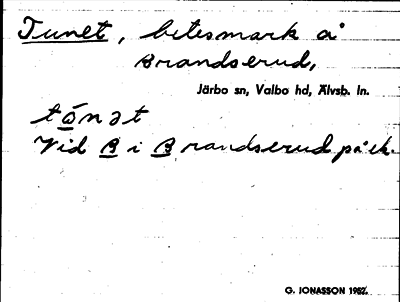 Tunet, betesmark å
Brandserud,
Järbo sn, Valbo hd, Älvsb. ln.
tónət
Vid B i Brandserud på ek.
G. JONASSON 1982.